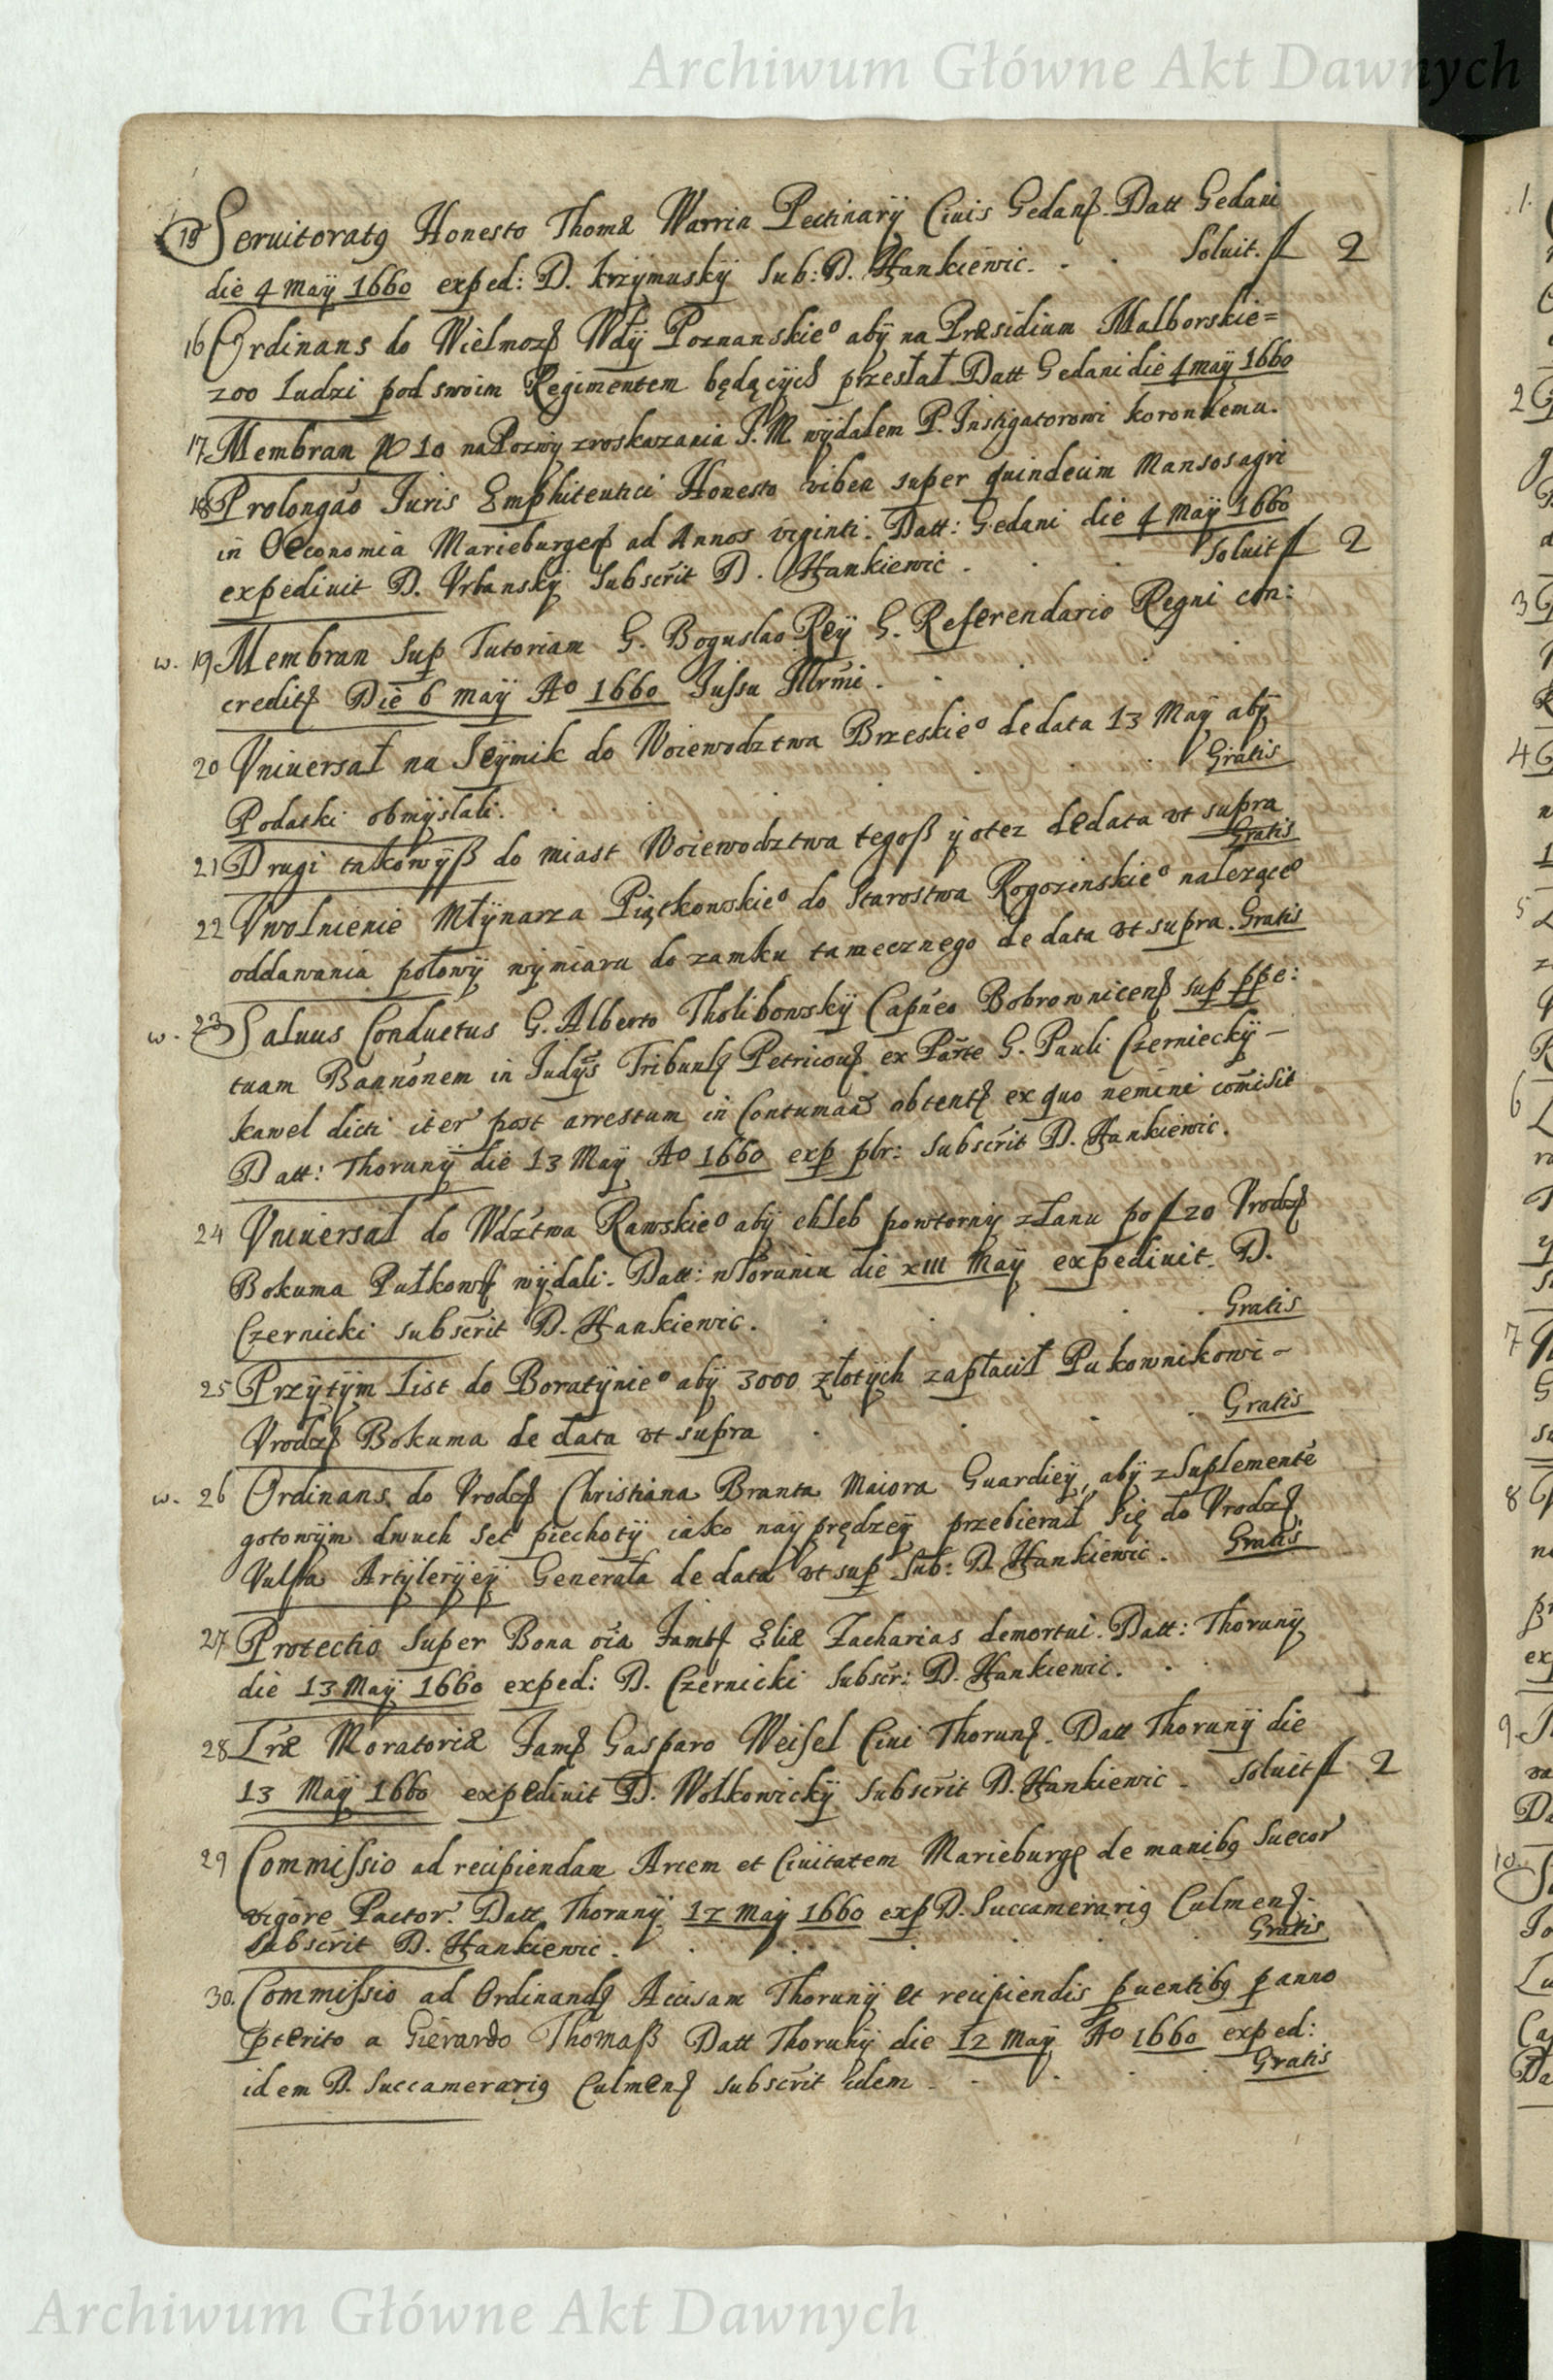 Archiwum Główne Akt Dawnych
15 Seruitoratq Honesto Thomæ Warrin Pectinarij Ciuis Gedanß. Datt Gedani
die 4 Maÿ 1660 exped: D. Krzÿmuskÿ Sub: D. Hankiewic. Soluit. f 2
16 Ordinans do Wielmozß Wdÿ Poznanskieº abÿ na Præsidium Malborskie=
200 ludzi pod swoim Regimentem będącÿch przesłał. Datt Gedani die 4 maÿ 1660
17 Membran No 10 na Pozwÿ z roskazania J. M wÿdałem P. Instigatorowi koronnemu.
18 Prolongão Juris Emphiteutici Honesto viben super quindecim Mansos agri
in Oeconomia Marieburgenß ad Annos viginti. Datt: Gedani die 4 Maÿ 1660
expediuit D. Vrbanskÿ Subscrit D. Hankiewic. Soluit f 2
w. 19 Membran Sup Tutoriam G. Boguslao Reÿ G. Referendario Regni con:
creditß Die 6 maÿ Aº 1660 Jussu Illrmi.
20 Vniuersał na Seÿmik do Woiewodztwa Brzeskieº de data 13 Maÿ abÿ
Podatki obmÿslali. Gratis
21 Drugi takowÿß do miast Woiewodztwa tegoß ÿ otez de data vt supra Gratis
22 Vwolnienie Młÿnarza Piątkowskieº do Starostwa Rogozinskieº naleząceº
oddawania połowÿ wÿmiaru do zamku tamecznego de data vt supra. Gratis
w. 23 Saluus Conductus G. Alberto Tholibowskÿ Capneo Bobrownicenß sup ppe:
tuam Bannõnem in Judÿs Tribunlß Petricouß ex Parte G. Pauli Czernieckÿ-
kawel dicti iter post arrestum in Contumaã obtentß ex quo nemini comisit
Datt: Thorunÿ die 13 Maÿ Aº 1660 exp pbr: Subscrit D. Hankiewic.
24 Vniuersał do Wdztwa Rawskieº abÿ chleb powtornÿ z Łanu po f 20 Vrodzß
Bokuma Pułkowß wÿdali. Datt: w Toruniu die XIII Maÿ expediuit D.
Czernicki subscrit D. Hankiewic. Gratis
25 Przÿtÿm List do Boratÿnieº abÿ 3000 złotÿch zapłacił Pukownikowi-
Vrodzß Bokuma de data vt supra Gratis
w. 26 Ordinans do Vrodzß Christiana Branta Maiora Guardieÿ, abÿ z Suplemente
gotowÿm dwuch Set piechotÿ iako naÿprędzeÿ przebierał się do Vrodzß
Vulfa Artÿlerÿeÿ Generała de data vt sup Sub: D Hankiewic. Gratis
27 Protectio Super Bona oia Famtß Eliæ Zacharias demortui. Datt: Thorunÿ
die 13 Maÿ 1660 exped: D. Czernicki Subscr: D. Hankiewic.
28 Lræ Moratoriæ Famß Gasparo Weisel Ciui Thorunß. Datt Thorunÿ die
13 Maÿ 1660 expediuit D. Wołkowickÿ Subscrit D. Hankiewic. Soluit f 2
29 Commissio ad recipiendam Arcem et Ciuitatem Marieburgß de manibq Suecor
vigore Pactor. Datt Thorunÿ 12 Maÿ 1660 exp D. Succamerariq Culmenß.
Subscrit D. Hankiewic. Gratis
30. Commissio ad Ordinandß Accisam Thorunÿ et recipiendis puentibq p anno
pterito a Gierardo Thomaß Datt Thorunÿ die 12 Maÿ Aº 1660 exped:
idem D. Succamerariq Culmenß subscrit idem. Gratis
Archiwum Główne Akt Dawnych